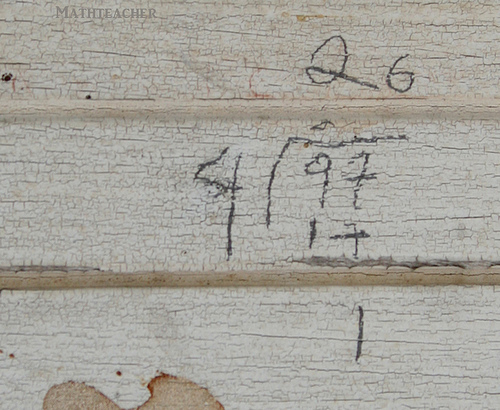 MATHTEACHER
26
2
4 97
17
1